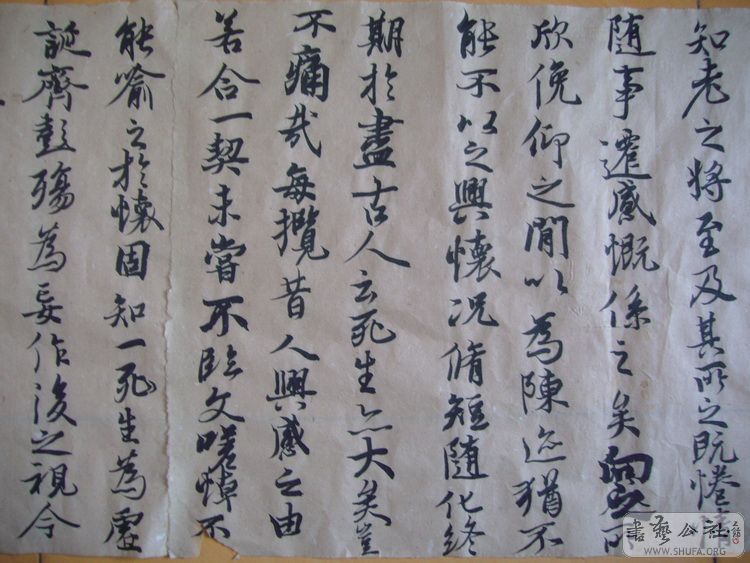 知老之將至及其所之既惓情
随事遷感慨係之矣向之所
欣俛仰之閒以為陳迹猶不
能不以之興懷况脩短隨化終
期於盡古人云死生亦大矣豈
不痛哉每攬昔人興感之由
若合一契未嘗不臨文嗟悼不
能喻之於懷固知一死生為虛
誕齊彭殤為妄作後之視今
書藝公社
WWW.SHUFA.ORG